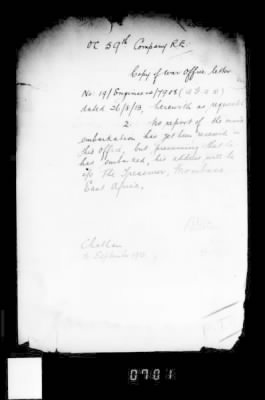 OC 39th Company R.E.
Copy of War Office letter
No. 19/Engineers/7908 (A.G.
dated 26/8/13, herewith as requested
2. No report of the
embarkation has yet been received in
this office, but presuming that he
has embarked, his address will be
c/o The Treasurer, Mombasa,
East Africa.
Chatham
September
0701